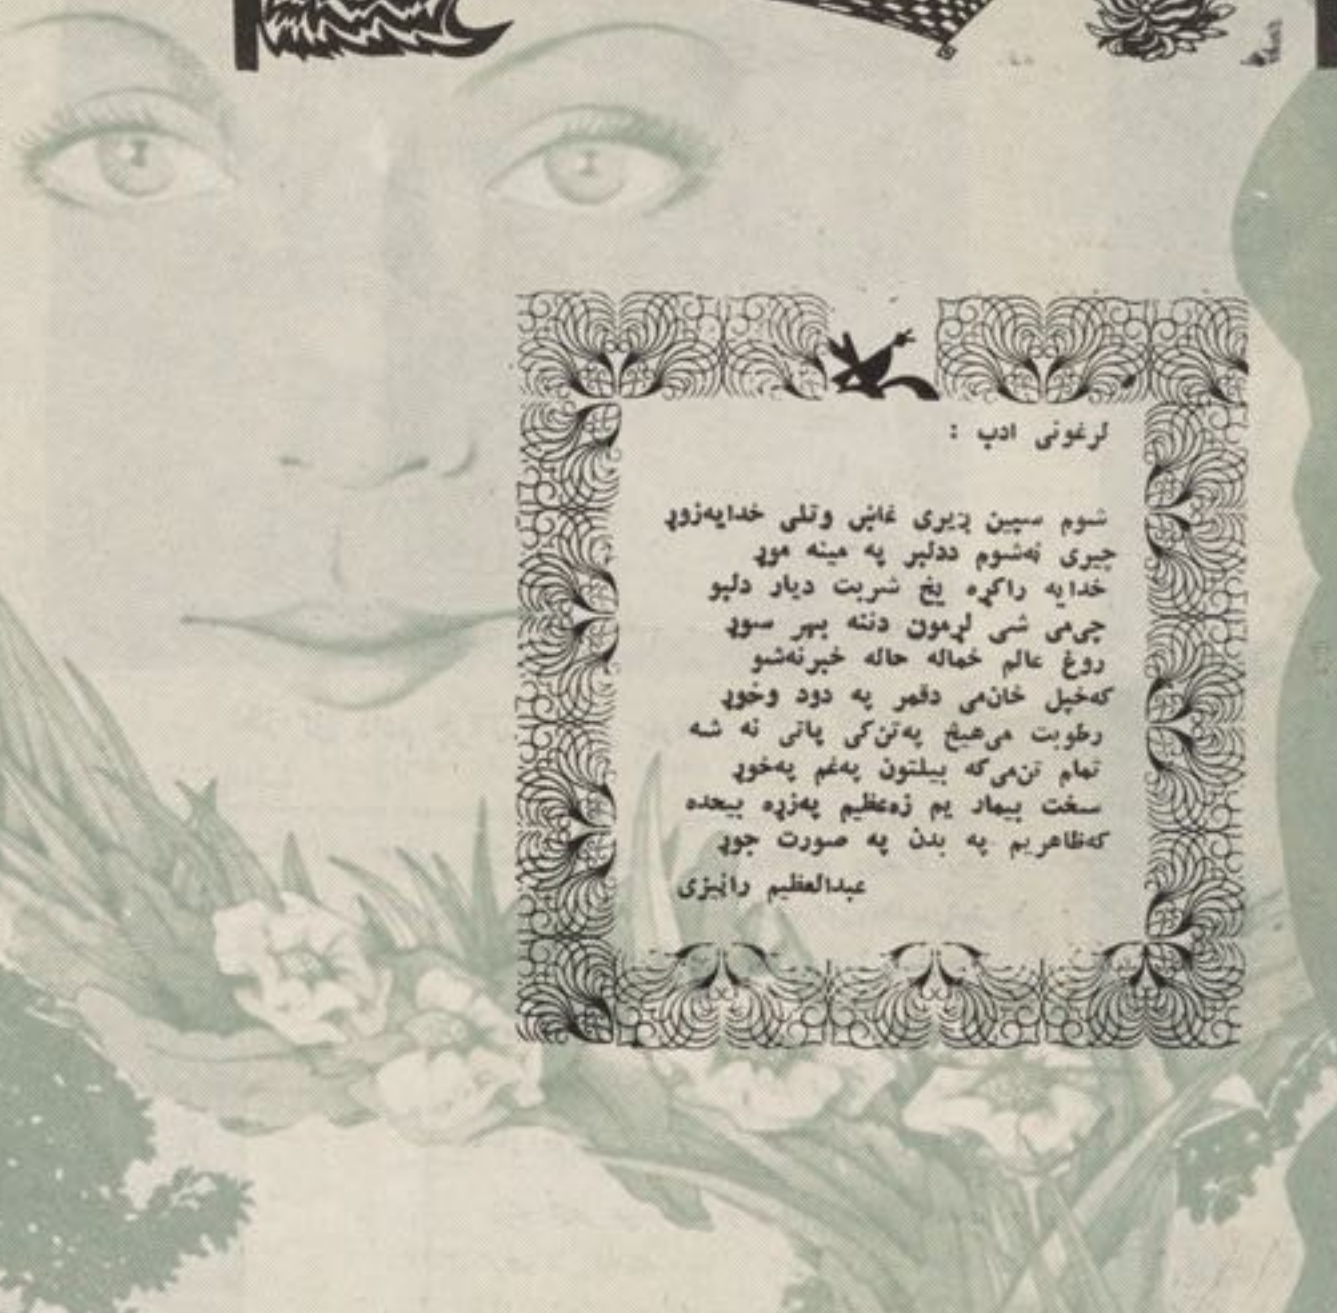 لرغونی ادب :
شوم سپین ږیری غاښ وتلی خدایه‌زوړ
چیری نه‌شوم ددلبر په مینه موړ
خدایه راکړه یخ شربت دیار دلبو
چی‌می شی لړمون دننه بهر سوړ
روغ عالم خماله حاله خبرنه‌شو
که‌خپل خان‌می دقمر په دود وخوړ
رطوبت می‌هیڅ په‌تن‌کی پاتی نه شه
تمام تن‌می‌که بیلتون په‌غم په‌خوړ
سخت بیمار یم زه‌عظیم په‌زړه بیحده
که‌ظاهریم په بدن په صورت جوړ
عبدالعظیم راڼیزی